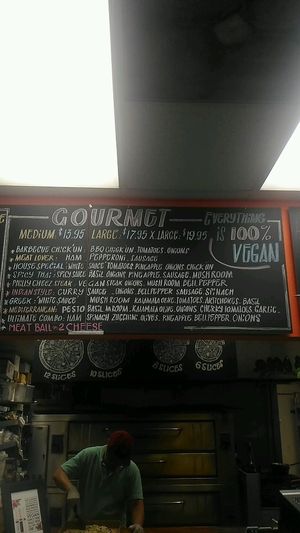 GOURMET
EVERYTHING IS 100% VEGAN
MEDIUM $13.95 LARGE $17.95 X LARGE $19.95
BARBECUE CHICK'UN BBQ CHICK UN, TOMATOES, ONIONS
MEAT LOVER: HAM PEPPERONI, SAUSAGE
HOUSE SPECIAL: WHITE SAUCE TOMATOES PINEAPPLE ONIONS CHICK UN
SPICY THAI: SPICY SAUCE BASIL ONIONS PINEAPPLE, SAUSAGE, MUSHROOM
PHILLY CHEEZ STEAK VEGAN STEAK ONIONS MUSHROOM BELL PEPPER
INDIAN STYLE: CURRY SAUCE ONIONS, BELL PEPPER SAUSAGE SPINACH
GREEK: WHITE SAUCE MUSHROOM KALAMATA OLIVE, TOMATOES, ARTICHOKES, BASIL
MEDITERRANEAN: PESTO BASIL KALAMATA OLIVE ONIONS, CHERRY TOMATOES, GARLIC
ULTIMATE COMBO: HAM SPINACH ZUCCHINI OLIVES, PINEAPPLE BELL PEPPER ONIONS
MEAT BALL = 2 CHEESE
12 SLICES
10 SLICES
8 SLICES
6 SLICES